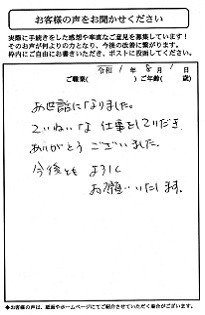 お客様の声をお聞かせください
実際に手続きをした感想や率直なご意見を募集しています！
そのお声が何よりの力となり、今後の改善に繋がります。
枠内にご自由にお書きいただき、ポストに投函してください。
令和 1 年 8 月 1
ご職業(　　　　)ご年齢(　　　歳)
お世話になりました。
ていねいな 仕事をしていただき、
ありがとうございました。
今後とも よろしく
お願いいたします。
※お客様の声は、紙面やホームページにてご紹介させていただく場合がございます。